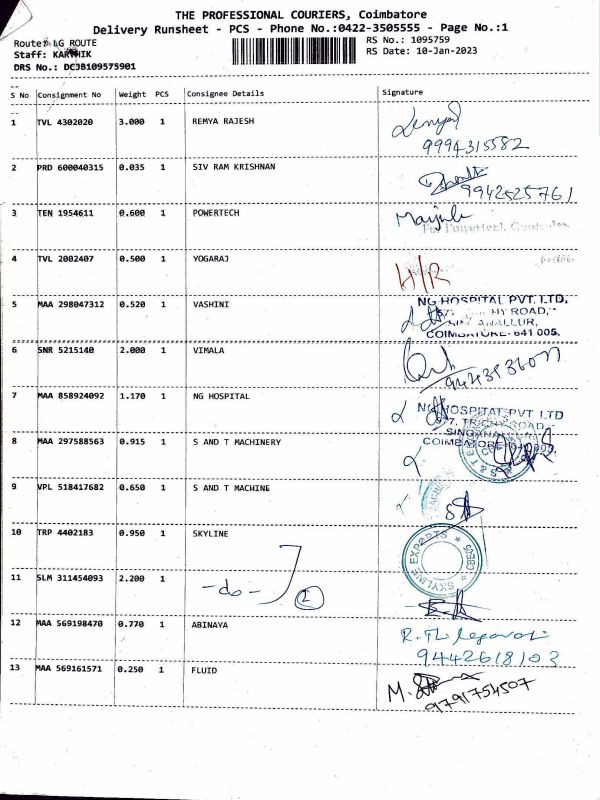 THE PROFESSIONAL COURIERS, Coimbatore
Delivery Runsheet - PCS - Phone No.:0422-3505555 - Page No.:1
Route: LG ROUTE
RS No.: 1095759
Staff: KARTHIK
RS Date: 10-Jan-2023
DRS No.: DCJB109575901
S No Consignment No Weight PCS Consignee Details Signature
1 TVL 4302020 3.000 1 REMYA RAJESH
9994315582
2 PRD 600040315 0.035 1 SIV RAM KRISHNAN
9942525761
3 TEN 1954611 0.600 1 POWERTECH
4 TVL 2002407 0.500 1 YOGARAJ
H/R
5 MAA 298047312 0.520 1 VASHINI
NG HOSPITAL PVT. LTD.
ROAD,
COIMBATORE - 641 005.
6 SNR 5215140 2.000 1 VIMALA
7 MAA 858924092 1.170 1 NG HOSPITAL
NG HOSPITAL PVT LTD
TRICHY ROAD,
8 MAA 297588563 0.915 1 S AND T MACHINERY
COIMBATORE
9 VPL 518417682 0.650 1 S AND T MACHINE
10 TRP 4402183 0.950 1 SKYLINE
SKYLINE EXPORTS
11 SLM 311454093 2.200 1 -do- 2
12 MAA 569198470 0.770 1 ABINAYA
9442618103
13 MAA 569161571 0.250 1 FLUID
9791754507